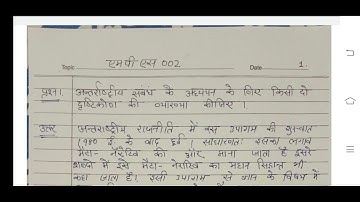 Topic एमपीएस 002 Date 1.
प्रश्न 1. अन्तर्राष्ट्रीय संबंध के अध्ययन के लिए किसी दो
दृष्टिकोण की व्याख्या कीजिए ।
उत्तर अन्तर्राष्ट्रीय राजनीति में इस उपागम की शुरुआत
1980 ई० के बाद हुई । सामान्यतः इसका लगाव
मैटा- नैरेटिव की ओर माना जाता है दूसरे
शब्दों में इसे मैटा- नैरेटिव का महान सिद्धान्त भी
कहा जाता है। इसी उपागम के विषय में